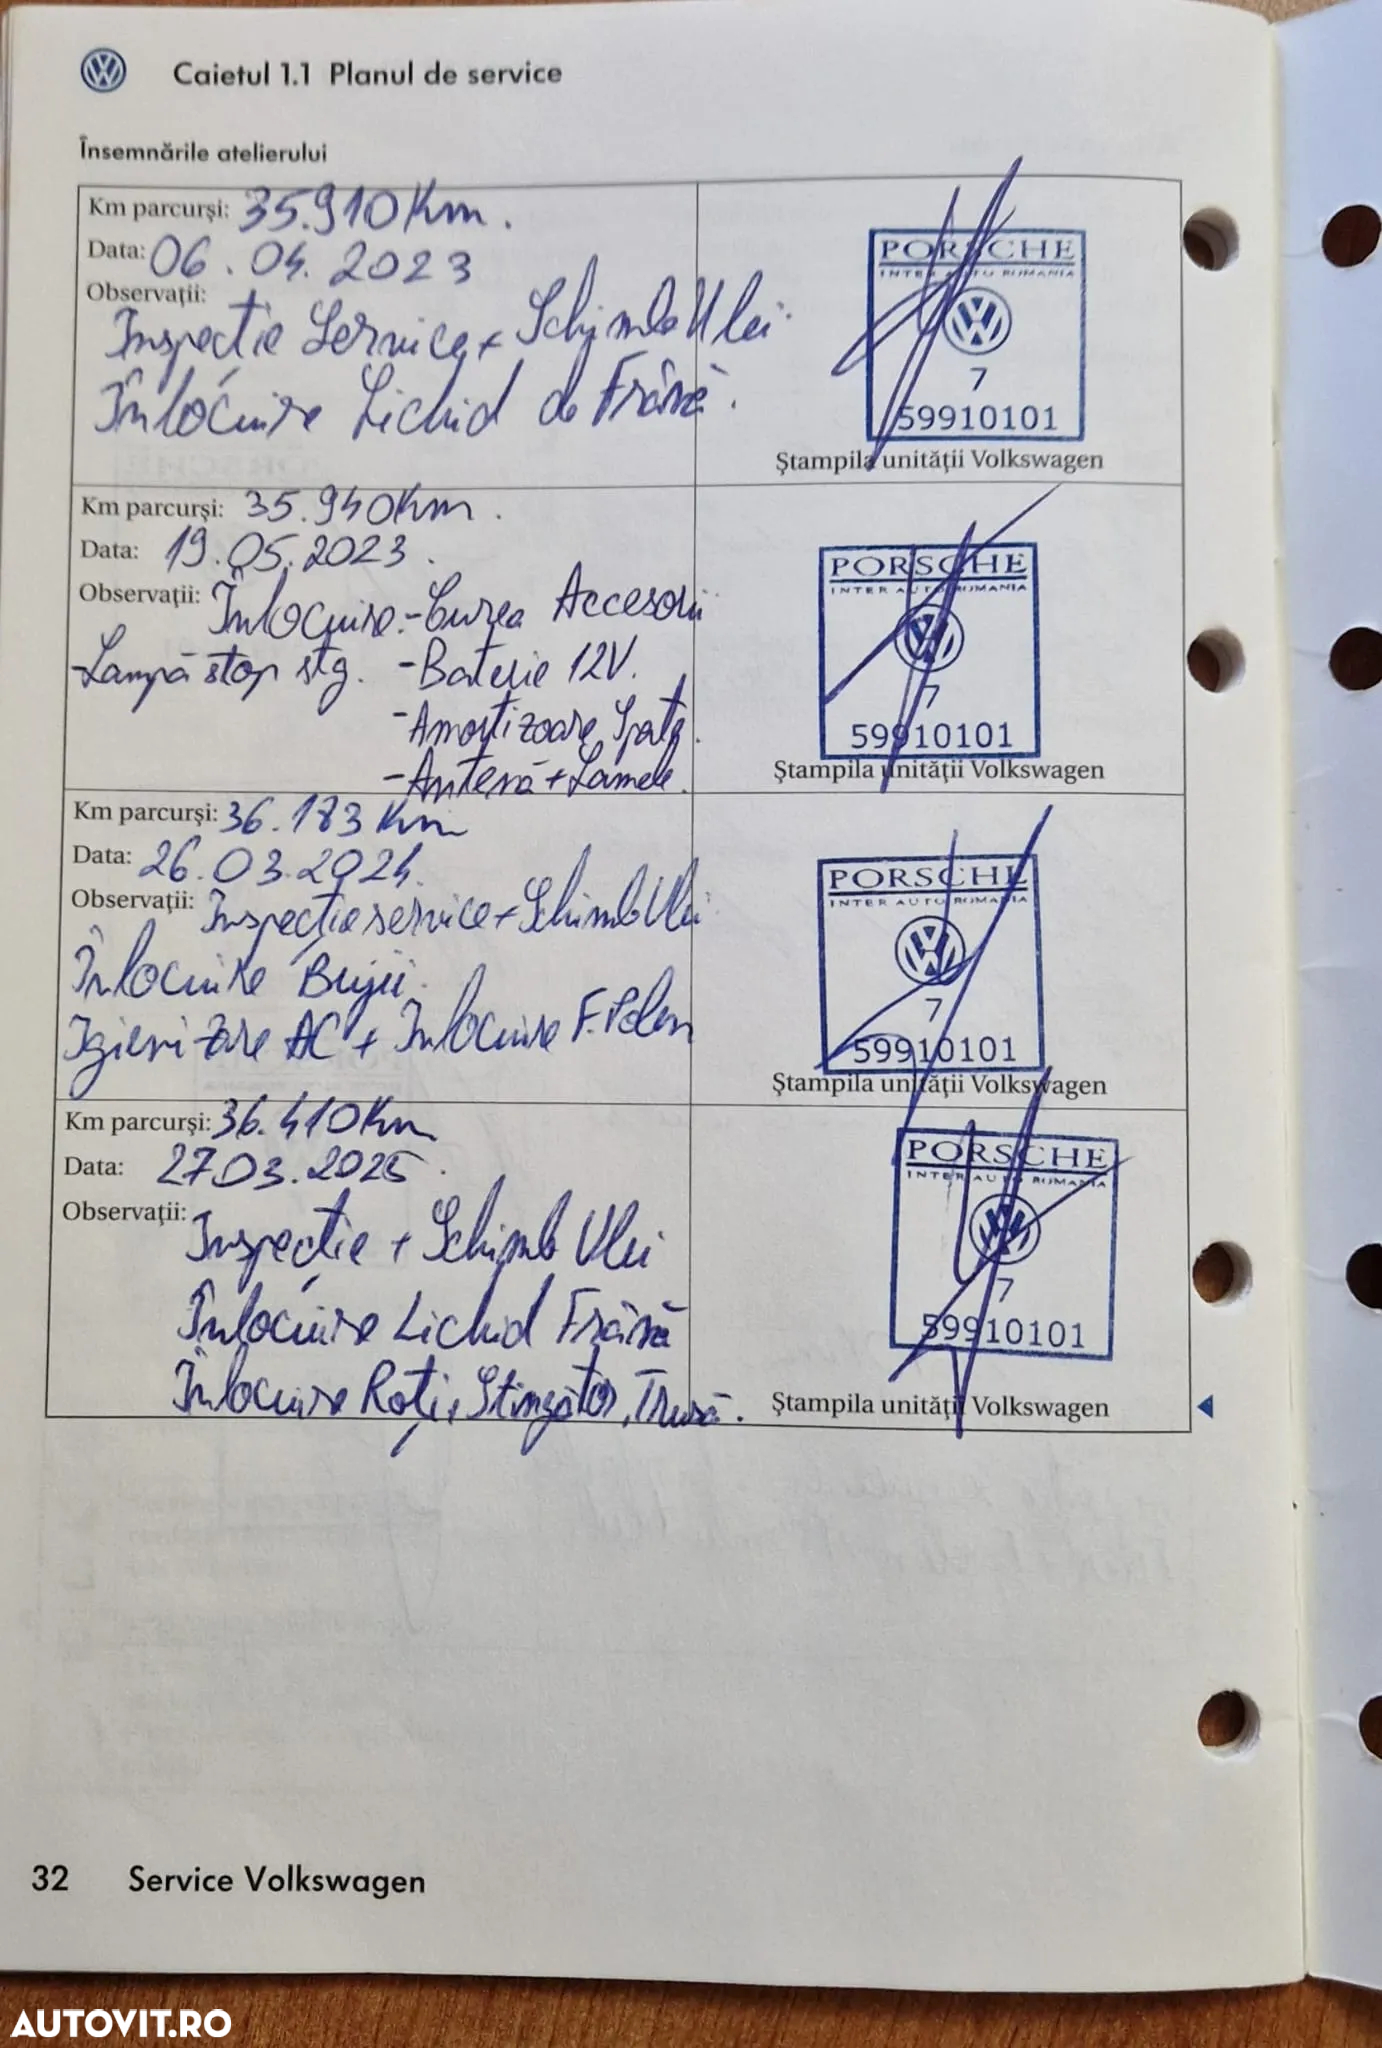 Caietul 1.1 Planul de service
Însemnările atelierului
Km parcurşi: 35.910 Km.
Data: 06.04.2023
Observaţii:
Inspecție Service + Schimb Ulei.
Înlocuire Lichid de Frână.
PORSCHE
INTER AUTO ROMANIA
7
59910101
Ştampila unităţii Volkswagen
Km parcurşi: 35.940 Km.
Data: 19.05.2023.
Observaţii: Înlocuire: - Curea Accesorii
- Lampă stop stg. - Baterie 12V.
- Amortizoare Spate.
- Antenă + Lamele.
PORSCHE
INTER AUTO ROMANIA
7
59910101
Ştampila unităţii Volkswagen
Km parcurşi: 36.183 Km
Data: 26.03.2024.
Observaţii: Inspecție service + Schimb Ulei
Înlocuire Bujii.
Igienizare AC + Înlocuire F. Polen
PORSCHE
INTER AUTO ROMANIA
7
59910101
Ştampila unităţii Volkswagen
Km parcurşi: 36.410 Km
Data: 27.03.2025.
Observaţii: Inspecție + Schimb Ulei
Înlocuire Lichid Frână
Înlocuire Roți, Stingător, Trusă.
PORSCHE
INTER AUTO ROMANIA
7
59910101
Ştampila unităţii Volkswagen
32 Service Volkswagen
AUTOVIT.RO